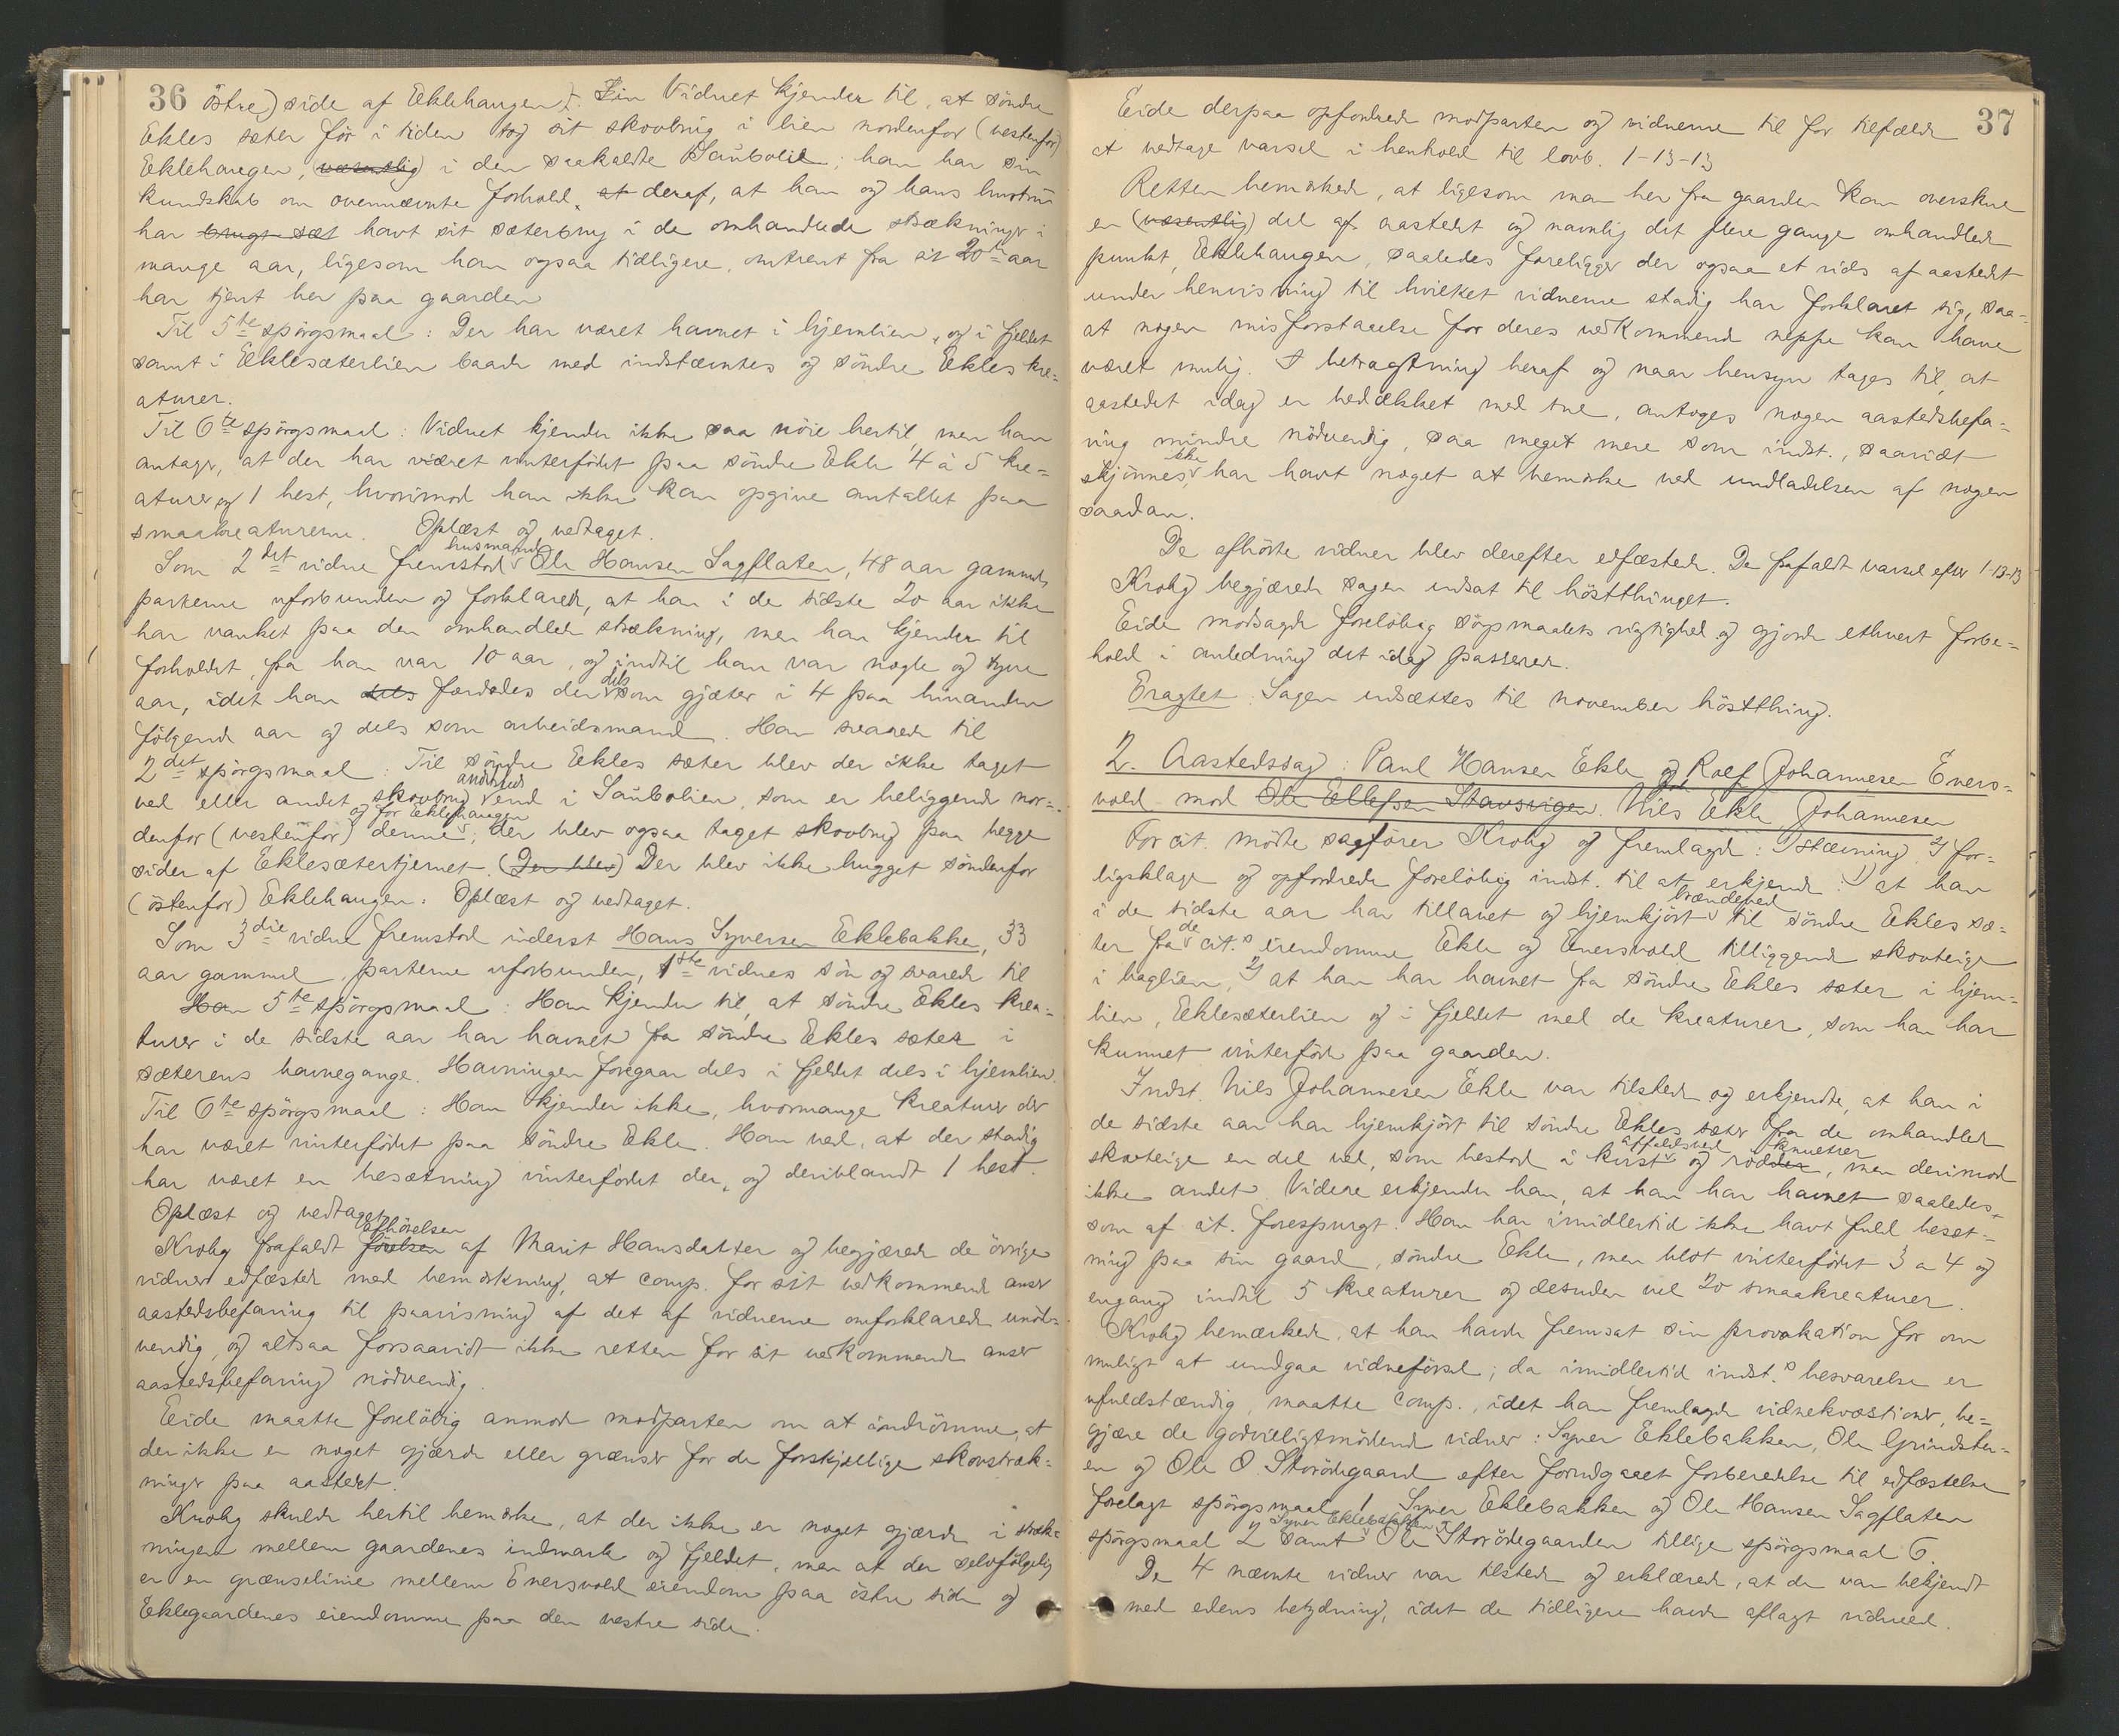 36 östre) side af Eklehaugen). Vidnet kjender til, at söndre
Ekles sæter för i tiden tog sit skovbrug i lien nordenfor (vestenfor)
Eklehaugen, (væsentlig) i den saakaldte Saubolie; han har sin
kundskab om ovennævnte forhold, at deraf, at han og hans hustru
har brugt sæt havt sit sæterbrug i de omhandlede strækninger i
mange aar, ligesom han ogsaa tidligere, omtrent fra sit 20de aar
har tjent her paa gaarden
Til 5te spörgsmaal: Der har været havnet i hjemlien, og i fjeldet
samt i Eklesæterlien baade med indstævntes og söndre Ekles kre-
aturer.
Til 6te spörgsmaal: Vidnet kjender ikke saa nöie hertil, men han
antager, at der har været vinterfödet paa söndre Ekle 4 à 5 kre-
aturer og 1 hest, hvorimod han ikke kan opgive antallet paa
smaakreaturerne. Oplæst og vedtaget.
Som 2det vidne fremstod husmand Ole Hansen Sagflaten, 48 aar gammel,
parterne uforbunden og forklarede, at han i de sidste 20 aar ikke
har vanket paa den omhandlede strækning, men han kjender til
forholdet, fra han var 10 aar, og indtil han var nogle og tyve
aar, idet han dels færdedes der dels som gjæter i 4 paa hinanden
fölgende aar og dels som arbeidsmand. Han svarede til
2det spörgsmaal: Til söndre Ekles sæter blev der ikke taget
ved eller andet skovbrug andetsteds end i Saubolien, som er beliggende nor-
denfor (vestenfor) denne og for Eklehaugen; der blev ogsaa taget skovbrug paa begge
sider af Eklesætertjernet. (Der blev) Der blev ikke hugget söndenfor
(östenfor) Eklehaugen. Oplæst og vedtaget.
Som 3die vidne fremstod inderst Hans Syversen Eklebakke, 33
aar gammel, parterne uforbunden, 1ste vidnes sön og svarede til
Han 5te spörgsmaal: Han kjender til, at söndre Ekles krea-
turer i de sidste aar har havnet fra söndre Ekles sæter i
sæterens havnegange. Havningen foregaar dels i fjeldet dels i hjemlien.
Til 6te spörgsmaal: Han kjender ikke, hvormange kreaturer der
har været vinterfödet paa söndre Ekle. Han ved, at der stadig
har været en besætning vinterfödet der, og deriblandt 1 hest.
Oplæst og vedtaget.
Krohg frafaldt förelsen afhörelsen af Marit Hansdatter og begjærede de övrige
vidner edfæstede med bemærkning, at comp. for sit vedkommende anser
aastedsbefaring til paavisning af det af vidnerne omforklarede unöd-
vendig, og altsaa forsaavidt ikke retten for sit vedkommende anser
aastedsbefaring nödvendig.
Eide maatte forelöbig anmode modparten om at indrömme, at
der ikke er noget gjærde eller grænser for de forskjellige skovstræk-
ninger paa aastedet.
Krohg skulde hertil bemærke, at der ikke er noget gjærde i stræk-
ningen mellem gaardenes indmark og fjeldet, men at der selvfölgelig
er en grænselinie mellem Enersvold eiendom paa östre side og
Eklegaardenes eiendomme paa den vestre side.
37
Eide derpaa opfordrede modparten og vidnerne til for tilfælde
at vedtage varsel i henhold til lovb. 1-13-13
Retten bemærkede, at ligesom man her fra gaarden kan overskue
en (væsentlig) del af aastedet og navnlig det flere gange omhandlede
punkt, Eklehaugen, saaledes foreligger der ogsaa et rids af aastedet
under henvisning til hvilket vidnerne stadig har forklaret sig, saa-
at nogen misforstaaelse for deres vedkommende neppe kan have
været mulig. I betragtning heraf og naar hensyn tages til, at
aastedet idag er bedækket med sne, antoges nogen aastedsbefa-
ring mindre nödvendig, saa meget mere som indst., saavidt
skjönnes, ikke har havt noget at bemærke ved undladelsen af nogen
saadan.
De afhörte vidner blev derefter edfæstede. De frafaldt varsel efter 1-13-13
Krohg begjærede sagen udsat til höstthinget.
Eide modsagde forelöbig sögsmaalets rigtighed og gjorde ethvert forbe-
hold i anledning det idag passerede.
Eragtet: Sagen udsættes til november höstthing.
2. Aastedssag: Paul Hansen Ekle og Rolf Johannesen Eners-
vold mod Ole Ellefsen Stavsvigen. Nils Ekle Johannesen
For cit. mödte sagförer Krohg og fremlagde: 1) stævning, 2) for-
ligsklage og opfordrede forelöbig indst. til at erkjende: 1) at han
i de sidste aar har tillavet og hjemkjört brændeved til söndre Ekles sæ-
ter fra de cit.s eiendomme Ekle og Enersvold tilliggende skovteige
i baglien, 2) at han har havnet fra söndre Ekles sæter i hjem-
lien, Eklesæterlien og i fjeldet med de kreaturer, som han har
kunnet vinterföde paa gaarden.
Indst. Nils Johannesen Ekle var tilstede og erkjendte, at han i
de sidste aar har hjemkjört til söndre Ekles sæter fra de omhandlede
skovteige en del ved, som bestod i kvist affaldsved og rödder, knuetrær men derimod
ikke andet. Videre erkjender han, at han har havnet saaledes,
som af cit. forespurgt. Han har imidlertid ikke havt fuld besæt-
ning paa sin gaard, söndre Ekle, men blot vinterfödet 3 a 4 og
engang indtil 5 kreaturer og desuden vel 20 smaakreaturer.
Krohg bemærkede, at han havde fremsat sin provokation for om
muligt at undgaa vidneförsel; da imidlertid indst.s besvarelse er
ufuldstændig, maatte comp., idet han fremlagde vidnekvæstioner, be-
gjære de godvilligtmödende vidner: Syver Eklebakken, Ole Grindstu-
en og Ole O. Storödegaard efter forudgaaet forberedelse til edfæstelse
forelagt spörgsmaal 1, Syver Eklebakken og Ole Hansen Sagflaten
spörgsmaal 2 samt Syver Eklebakken og Ole Storödegaarden tillige spörgsmaal 6.
De 4 nævnte vidner var tilstede og erklærede, at de var bekjendt
med edens betydning, idet de tidligere havde aflagt vidneed.